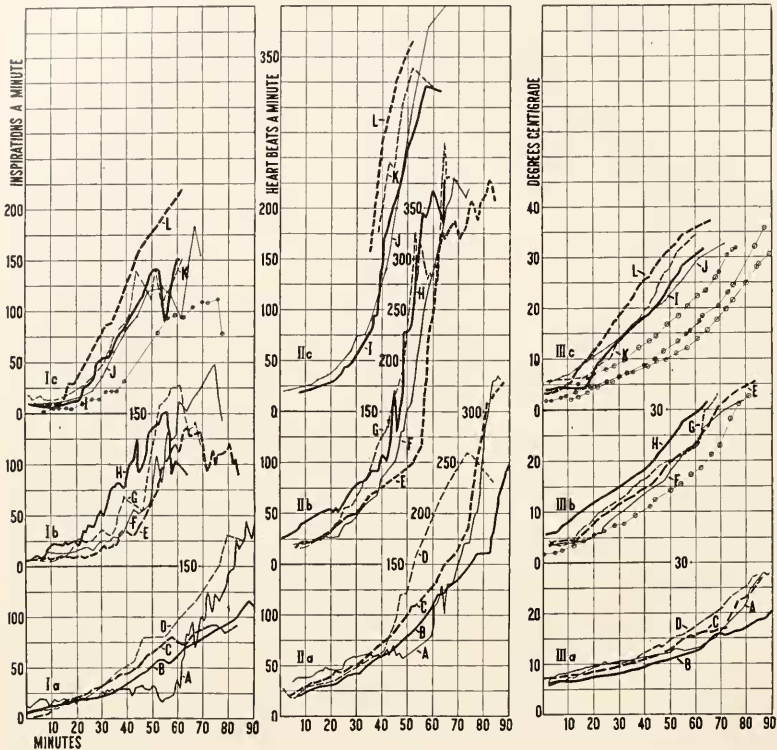 INSPIRATIONS A MINUTE
200
150
100
50
0
L
K
J
I
Ic
150
100
50
0
H
G
F
E
Ib
150
100
50
0
D
C
B
A
Ia
10 20 30 40 50 60 70 80 90
MINUTES
HEART BEATS A MINUTE
350
200
150
100
50
0
L
K
J
I
IIc
350
300
250
200
150
100
50
0
H
G
F
E
IIb
300
250
200
150
100
50
0
D
C
B
A
IIa
10 20 30 40 50 60 70 80 90
DEGREES CENTIGRADE
40
30
20
10
0
L
J
I
K
IIIc
30
20
10
0
H
G
E
F
IIIb
30
20
10
0
D
C
A
B
IIIa
10 20 30 40 50 60 70 80 90